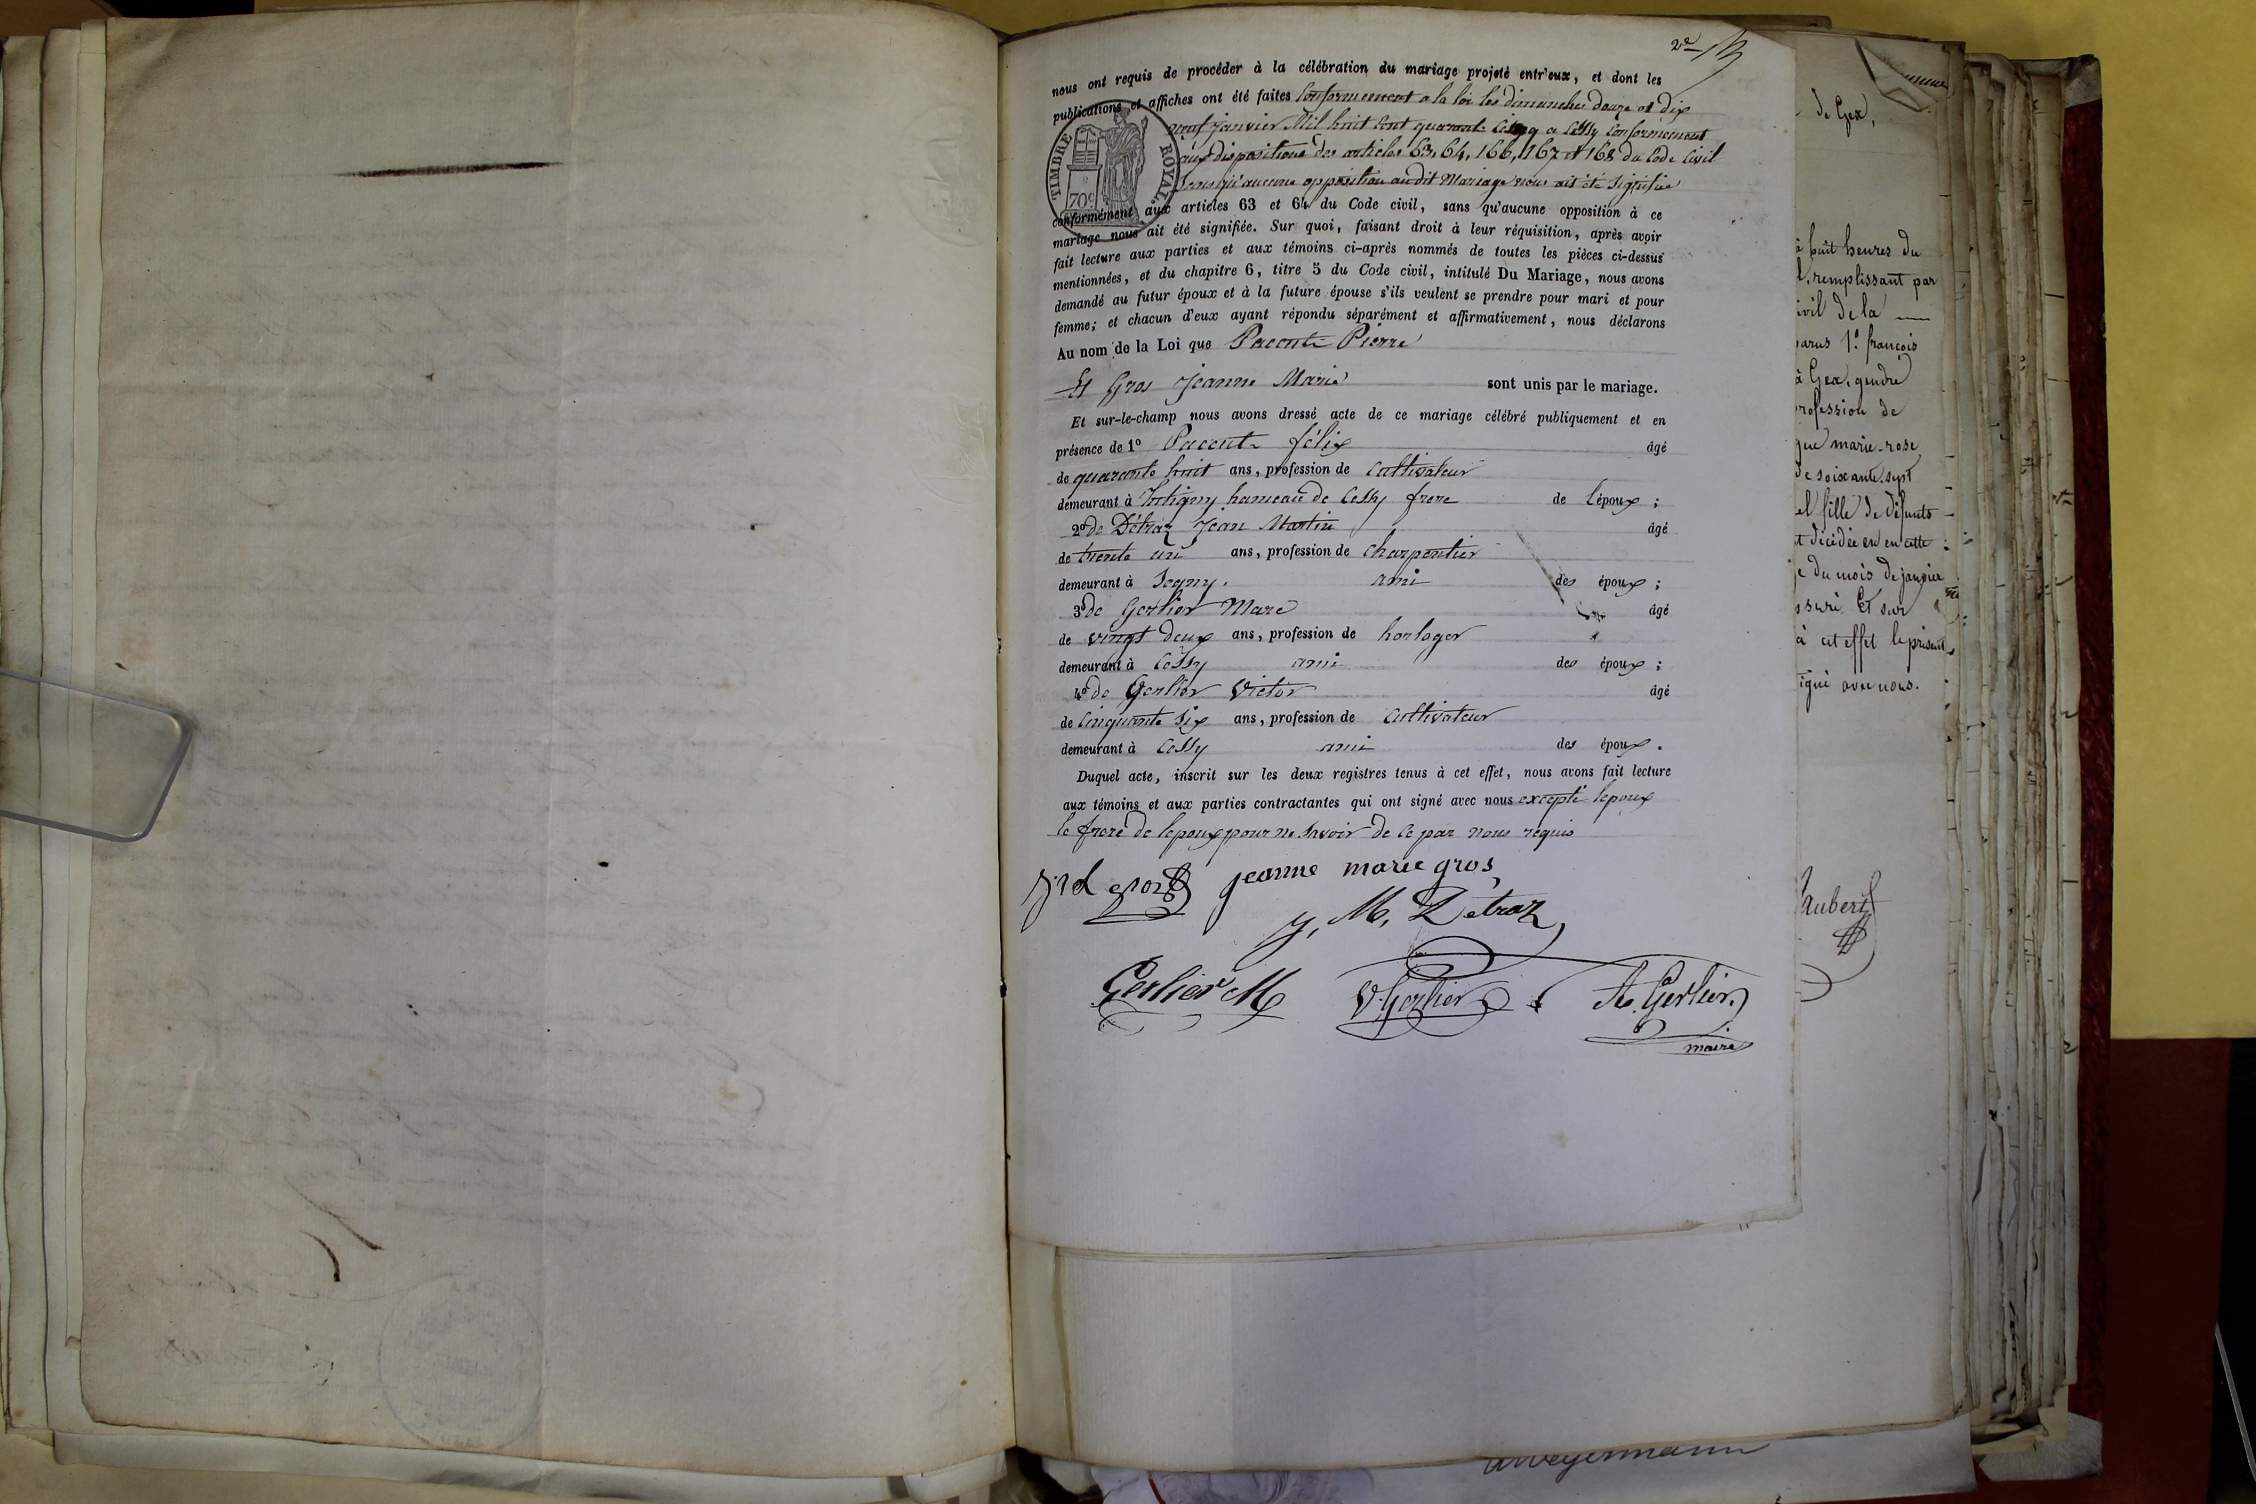 2e
nous ont requis de procéder à la célébration du mariage projeté entr'eux, et dont les
publications et affiches ont été faites Conformement a la loi les dimanches douze et dix
neuf janvier Mil huit cent quarante cinq a Cessy Conformement
aux dispositions des articles 63, 64, 166, 167 et 168 du Code Civil
sans qu'aucune opposition audit Mariage nous ait été signifiée
TIMBRE ROYAL.
70c
conformément aux articles 63 et 64 du Code civil, sans qu'aucune opposition à ce
mariage nous ait été signifiée. Sur quoi, faisant droit à leur réquisition, après avoir
fait lecture aux parties et aux témoins ci-après nommés de toutes les pièces ci-dessus
mentionnées, et du chapitre 6, titre 5 du Code civil, intitulé Du Mariage, nous avons
demandé au futur époux et à la future épouse s'ils veulent se prendre pour mari et pour
femme; et chacun d'eux ayant répondu séparément et affirmativement, nous déclarons
Au nom de la Loi que Pacoute Pierre
Et Gros Jeanne Marie sont unis par le mariage.
Et sur-le-champ nous avons dressé acte de ce mariage célébré publiquement et en
présence de 1o Pacoute félix âgé
de quarante huit ans, profession de Cultivateur
demeurant à hameau de Cessy frere de l'époux ;
2o de Détraz Jean Martin âgé
de trente un ans, profession de Charpentier
demeurant à Segny. ami des époux ;
3o de Gerlier Marc âgé
de vingt deux ans, profession de horloger
demeurant à Cessy ami des époux ;
4o de Gerlier Victor âgé
de Cinquante Six ans, profession de Cultivateur
demeurant à Cessy ami des époux.
Duquel acte, inscrit sur les deux registres tenus à cet effet, nous avons fait lecture
aux témoins et aux parties contractantes qui ont signé avec nous excepté lepoux
le frere de lepoux pour ne Savoir de ce par nous requis
gros jeanne marie gros
J. M. Détraz
Gerlier M V. Gerlier A. Gerlier
maire
de Gex,
à huit heures du
remplissant par
ivil de la
parus 1o françois
à Gex, gendre
rofession de
que marie-rose
de soixante sept
el fille de défunts
t décédée en cette
e du mois de janvier
ssuré Et sur
à cet effet le présent
igné avec nous.
aubert